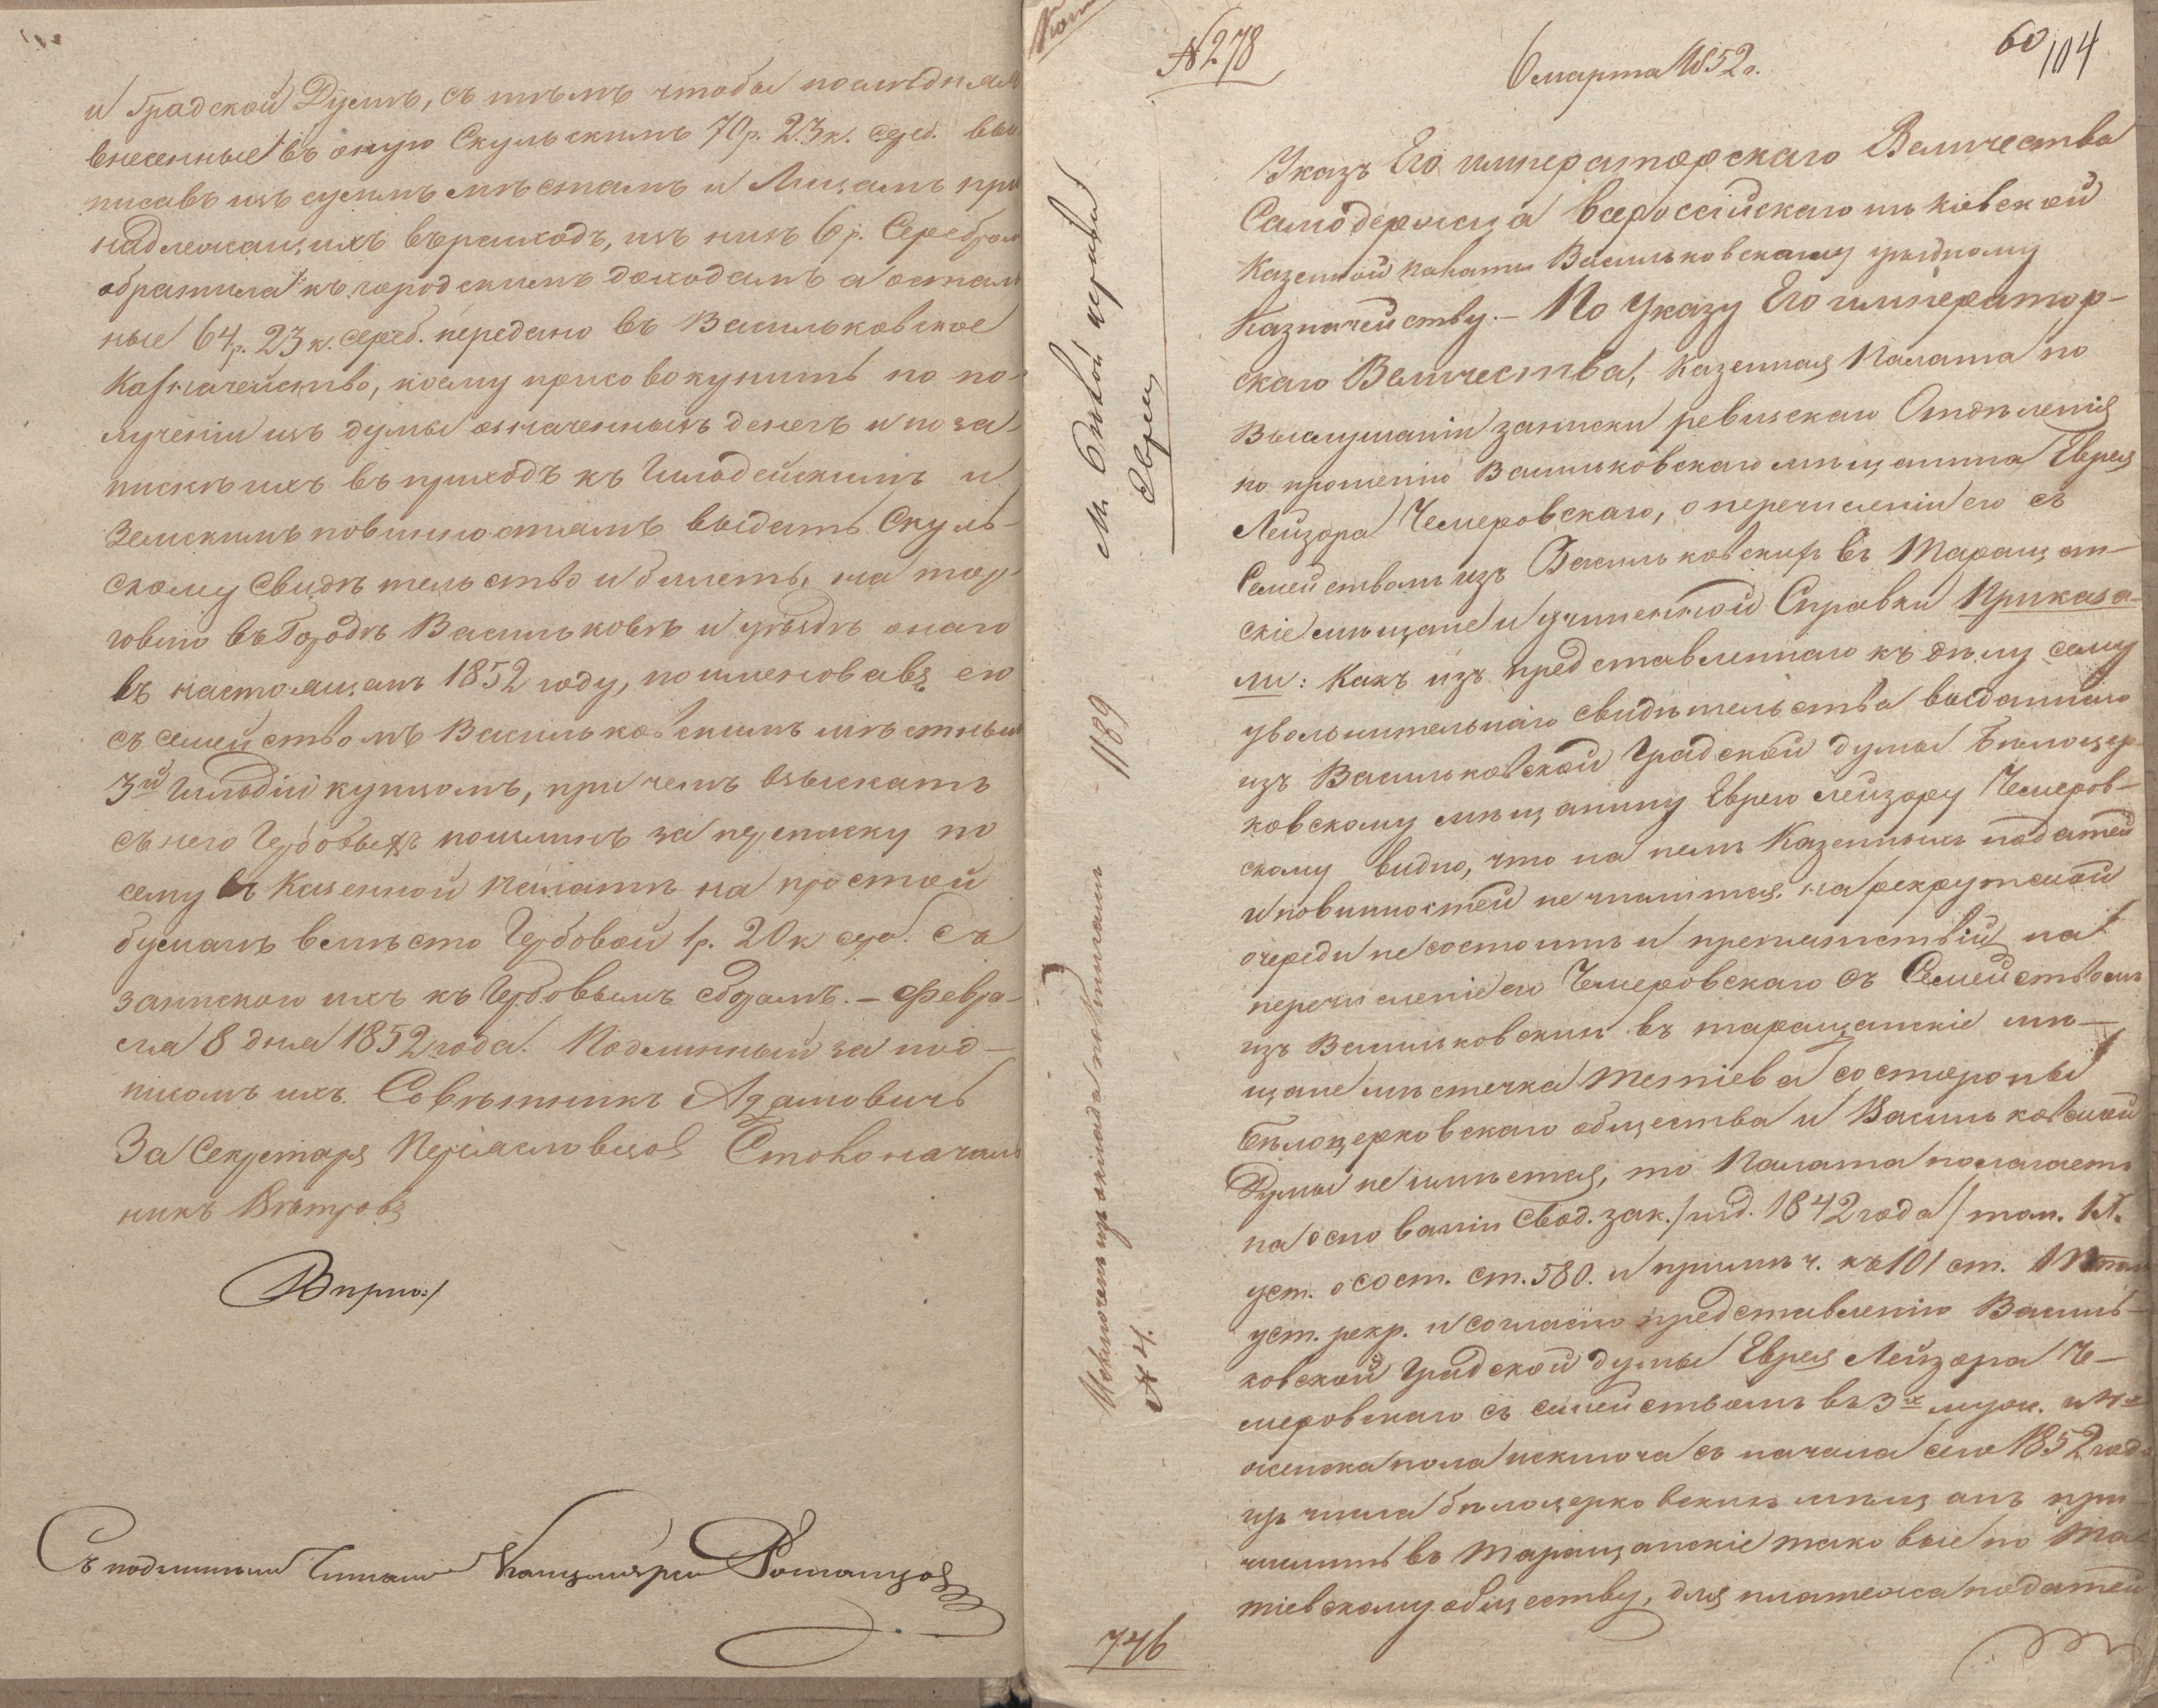 и Градской Думѣ, съ тѣмъ чтобы послѣдняя
внесенные въ оную Скульскимъ 70 р. 23 к. сереб. вы
писавъ изъ суммъ мѣстамъ и Лицамъ при
надлежащихъ въ расходъ, изъ нихъ 6 р. Серебром
обратила къ городскимъ доходамъ а осталь
ные 64 р. 23 к. сереб. передано въ Васильковское
Казначейство, коему присовокупить по по-
лученіи изъ думы означенныхъ денегъ и по за-
пискѣ ихъ въ приходъ къ Гильдейскимъ и
Земскимъ повинностямъ выдать Скуль-
скому Свидѣтельство и билетъ, на тор-
говлю въ Городѣ Васильковѣ и уѣздѣ онаго
въ настоящемъ 1852 году, поименовавъ его
съ семействомъ Васильковскимъ мѣстным
3й Гильдіи купцомъ, при чемъ взыскать
съ него Гербовыхъ пошлинъ за переписку по
сему въ Казенной Палатѣ на простой
бумагѣ вмѣсто Гербовой 1 р. 20 к сереб. Съ
запискою ихъ къ Гербовымъ сборамъ. – Февра-
ля 8 дня 1852 года. Подлинный за под-
писомъ ихъ. Совѣтникъ Адамовичъ
За Секретаря Переясловцов Столоначаль
никъ Вѣтровъ
Вѣрно:
Съ подлиннымъ Читалъ Канцеляристъ Романцов
№ 278
6 марта 1852 г.
60
104
Указъ Его императорскаго Величества
Самодержца всероссійскаго изъ кіевской
Казенной палаты Васильковскому уѣздному
Казначейству. – По Указу Его император-
скаго Величества, Казенная Палата по
выслушаніи записки ревизскаго Отдѣленія
по прошенію Васильковскаго мѣщанина Еврея
Лейзора Чемеровскаго, о перечисленіи его съ
Семействомъ изъ Васильковскихъ въ Таращан-
скіе мѣщане и учиненной Справки Приказа-
ли: Какъ изъ представленнаго къ дѣлу сему
увольнительнаго свидѣтельства выданнаго
изъ Васильковской Градской думы Бѣлоцер-
ковскому мѣщанину Еврею Лейзору Чемеров-
скому видно, что на немъ Казенныхъ податей
и повинностей не числится, на рекрутской
очереди не состоитъ и препятствій на
перечисленіе его Чемеровскаго съ Семействомъ
изъ Васильковскихъ въ таращанскіе мѣ-
щане мѣстечка Тетіева со стороны
Бѣлоцерковскаго общества и Васильковской
Думы не имѣется, то Палата полагаетъ
на основаніи Свод. зак. /изд. 1842 года/ том. IX.
уст. о сост. ст. 580. и примѣч. къ 101 ст. том
уст. рекр. и согласно представленію Василь-
ковской Градской думы Еврея Лейзора Че-
меровскаго съ семействомъ въ 3хъ муж. и
женска пола исключа съ начала сего 1852 года
изъ числа бѣлоцерковскихъ мѣщанъ при-
числить въ Таращанскіе таковые по Те-
тіевскому обществу, для платежа податей
М. Бѣлой церкви
Евреи
Исключены изъ оклада по книгамъ 1189
№ 4.
746